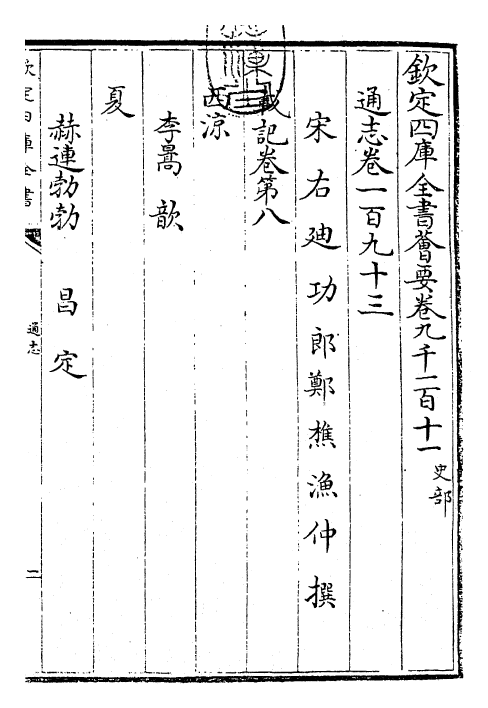 欽定四庫全書薈要卷九千二百十一 史部
通志卷一百九十三
宋右廸功郎鄭樵漁仲撰
載記卷第八
西涼
李暠 歆
夏
赫連勃勃 昌 定
欽定四庫全書
通志
二